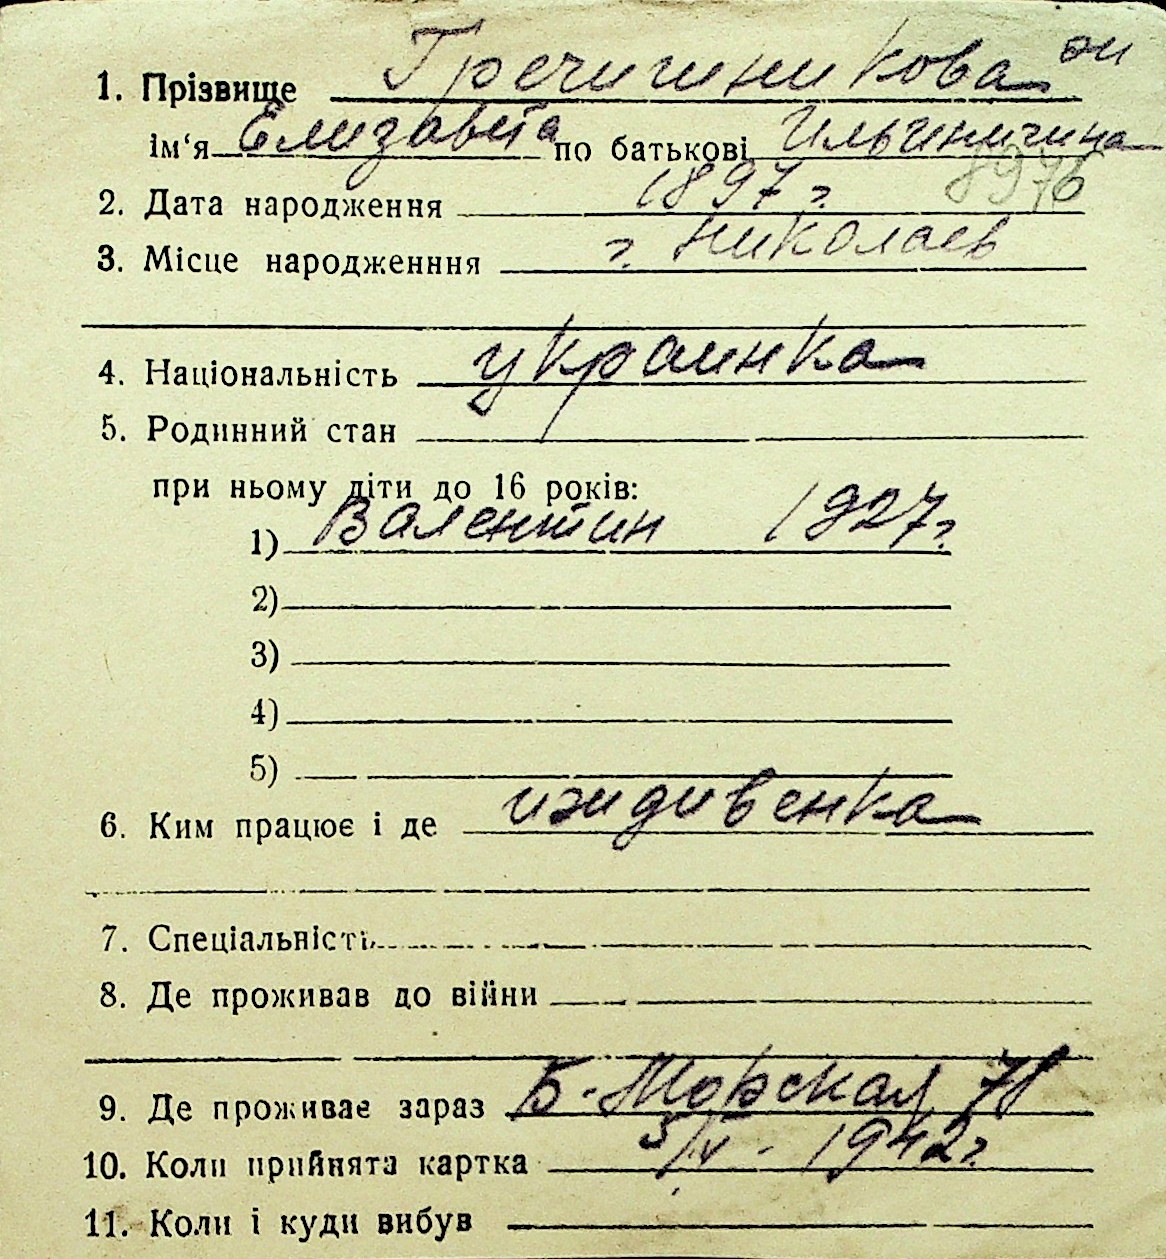 1. Прізвище Гречишникова эи
ім'я Елизавета по батькові Ильинична
2. Дата народження 1897 г. 8976
3. Місце народженння г. Николаев
4. Національність украинка
5. Родинний стан
при ньому діти до 16 років:
1) Валентин 1927 г.
2)
3)
4)
5)
6. Ким працює і де иждивенка
7. Спеціальність
8. Де проживав до війни
9. Де проживає зараз Б. Морская 78
10. Коли прийнята картка 5/IV - 1942 г.
11. Коли і куди вибув